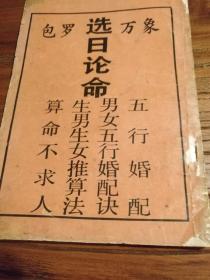 包罗万象
选日论命
五行婚配
男女五行婚配诀
生男生女推算法
算命不求人